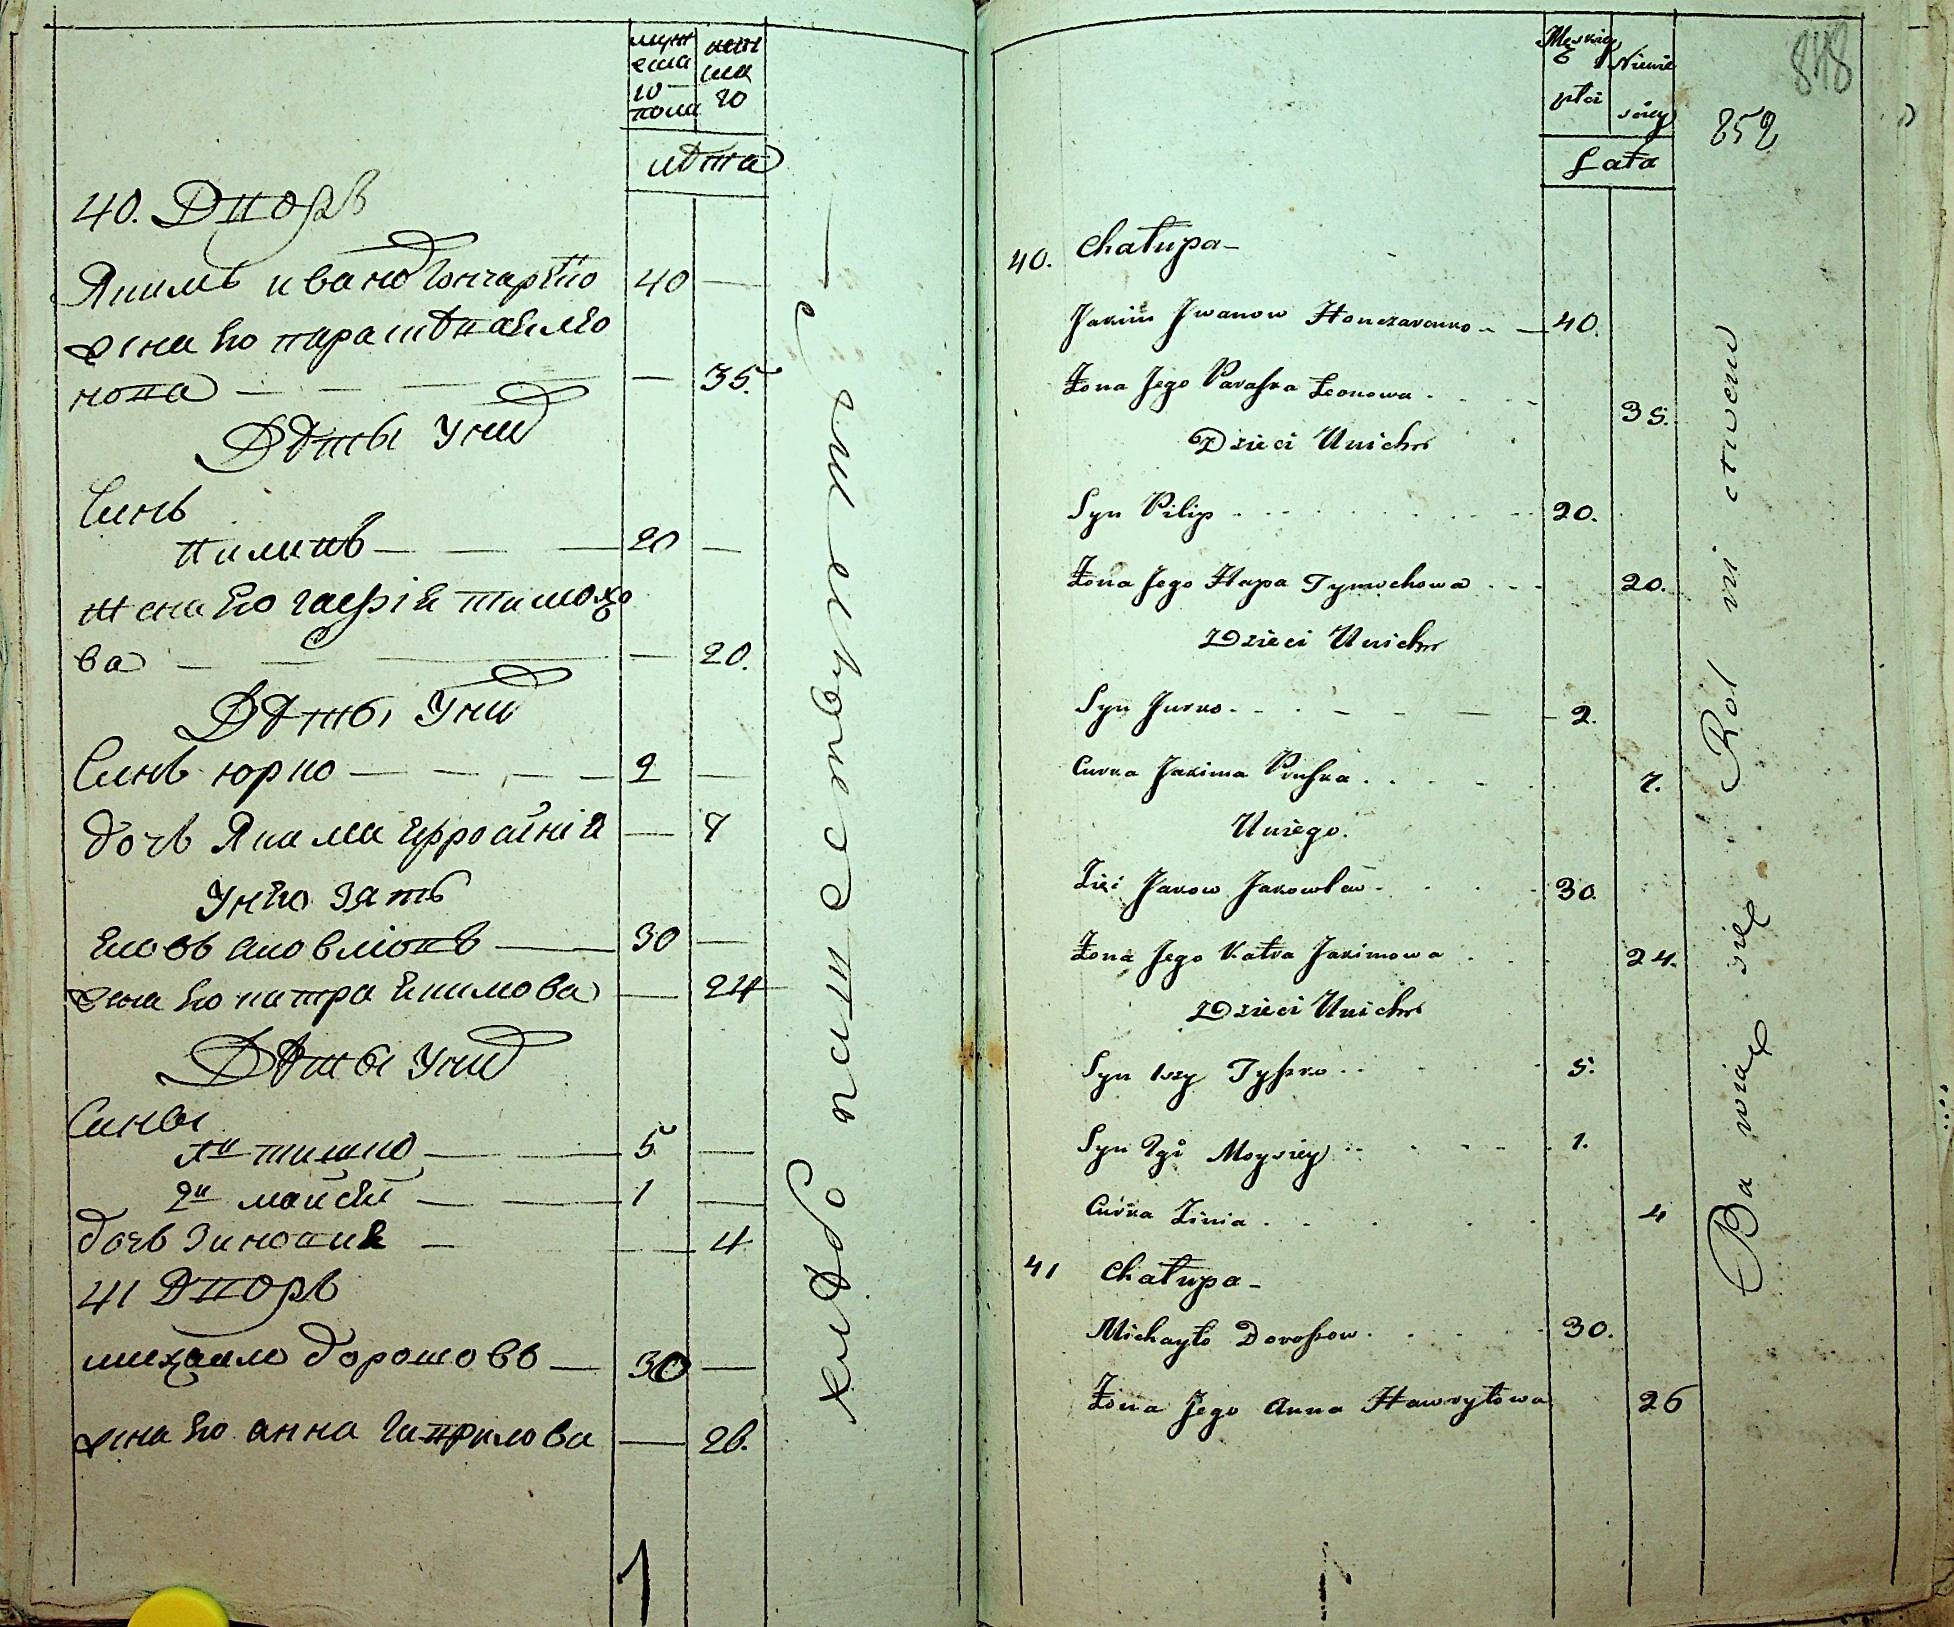 мужеска го пола
женска го
лѣта
40. Дворъ
Якимъ иванов гончаренко 40 —
жена его парасковѣя лео
нова — 35.
Дѣты у них
Синъ
пилипъ — 20 —
жена его гаепія тимохо
ва — 20.
Дѣты у них
Синъ юрко — 2 —
дочъ Якима ефросинія — 7
у него зять
яковъ яковлювъ — 30 —
жена его катра якимова — 24
Дѣты у них
Сины
1й тишко — 5 —
2й мойсей — 1 —
дочъ зиновия — 4
41 Дворъ
михаило дорошовъ — 30 —
жена его анна гаврилова — 26.
хлѣбопашествуетъ
Męskiey płci
Niewieściey
Lata
848
852
40. Chałupa
Jakim Jwanow Honczarenko 40.
Żona Jego Paraska Leonowa 35.
Dzieci U nich
Syn Pilip 20.
Żona Jego Hapa Tymochowa 20.
Dzieci U nich
Syn Jurko 2.
Curka Jakima Pruska 7.
U niego.
Zięć Jakow Jakowlew 30.
Żona Jego Katra Jakimowa 24.
Dzieci U nich
Syn 1szy Tyszko 5.
Syn 2gi Moysiey 1.
Curka Zinia 4
41 Chałupa
Michayło Doroszow 30.
Żona Jego Anna Hawryłowa 26
Bawią się Rolnictwem